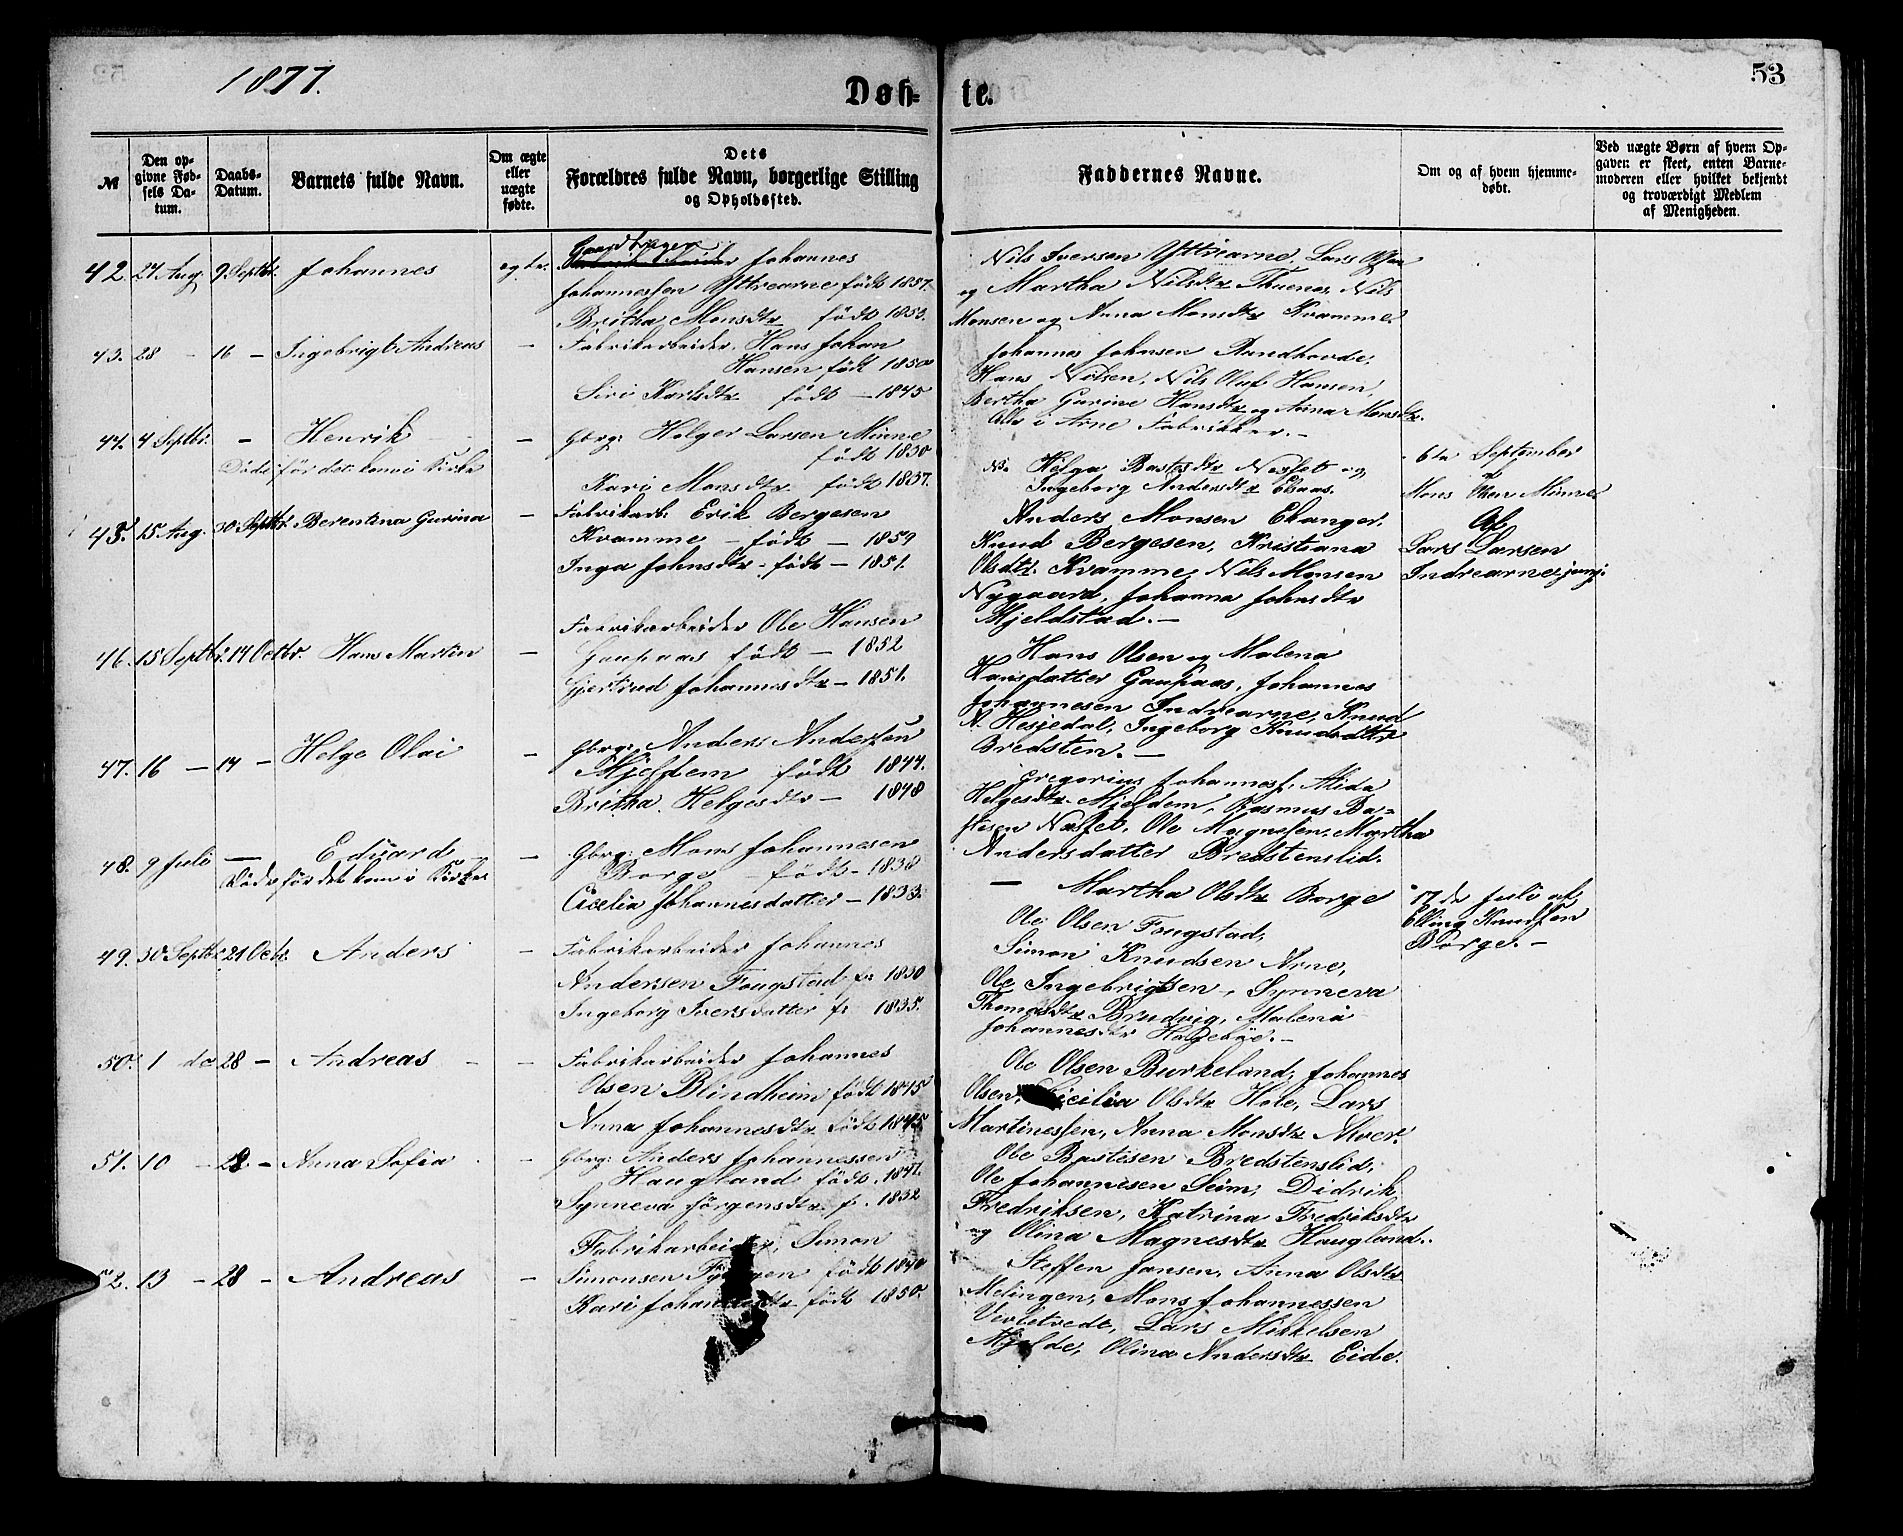 1877.
Døb-
te.
53
№
Den op-
givne Fød-
sels Da-
tum.
Daabs-
Datum.
Barnets fulde Navn.
Om ægte
eller
uægte
fødte.
Dets
Forældres fulde Navn, borgerlige Stilling
og Opholdssted.
Faddernes Navne.
Om og af hvem hjemme-
døbt.
Ved uægte Børn af hvem Op-
gaven er skeet, enten Barne-
moderen eller hvilket bekjendt
og troværdigt Medlem
af Menigheden.
42. 27 Aug 9 Septbr. Johannes
egte.
Gaardbruger
Johannes
Johannessen Yttrearne födt 1857.
Britha Monsdtr födt 1853.
Nils Iversen Yttrearne, Lars
og Martha Nilsdtr Thuenes, Nils
Monsen og Anna Monsdtr Kvamme.
43. 28 - 16 - Ingebrigt Andreas -
Fabrikarbeider Hans Johan
Hansen födt 1850
Siri Karlsdtr födt - 1845
Johannes Johnsen Randhovde,
Hans Nilsen, Nils Oluf Hansen,
Bertha Gurine Hansdtr og Anna Monsdtr.
Alle i Arne Fabrikker. -
44. 4 Septbr. - Henrik -
Döde för det kom i Kirke
Gbrg: Holger Larsen Minne
födt 1830
Kari Monsdtr födt 1837.
Helga Bastesdtr Nesset og
Ingeborg Andersdtr Elsaas.
6te September
af
Mons Olsen Minne
45. 15 Aug. 30 Septbr. Berentina Gurina -
Fabrikarb: Erik Bergesen
Kvamme - födt - 1859
Inga Johnsdtr - födt - 1851.
Anders Monsen Ekanger,
Knud Bergesen, Kristiana
Olsdtr. Kvamme, Nils Monsen
Nygaard, Johanna Johnsdtr
Mjeldstad. -
Af
Lars Larsen
Indrearne junj.
46. 15 Septbr. 14 Octbr. Hans Martin -
Fabrikarbeider Ole Hansen
Gaupaas födt - 1852
Gjertrud Johannesdtr - 1851.
Hans Olsen og Malena
Hansdatter Gaupaas, Johannes
Johannesen Indrearne, Knud
A. Hesjedal, Ingeborg Knudsdatter
Bredsten. -
47. 16 - 14 - Helge Olai -
Gbrg: Anders Andersen
Mjeldem födt 1844.
Britha Helgesdtr - 1848
Gregorius Johanness. Alida
Helgesdtr. Mjeldem, Rasmus Ba-
stesen Næsset, Ole Magnesen, Martha
Andersdatter Bredstenslid.
48. 9 Juli - Edvard -
Döde för det kom i Kirke
Gbrg: Mons Johannesen
Borge - födt - 1838
Cicelia Johannesdatter - 1833.
- Martha Olsdtr Borge
17de Juli af
Elling Knudsen
Borge. -
49. 30 Septbr. 21 Octbr. Anders -
Fabrikarbeider Johannes
Andersen Fougstad f: 1830
Ingeborg Iversdatter f: 1835.
Ole Olsen Fougstad,
Simon Knudsen Arne,
Ole Ingebrigtsen, Synneva
Thomasdtr Brudvig, Malena
Johannesdtr
50. 1 de 28 - Andreas - -
Fabrikarbeider Johannes
Olsen Blindheim födt 1845
Anna Johannesdtr födt 1845
Ole Olsen Burkeland, Johannes
Olsen, Cicilia Olsdtr Hole, Lars
Martinessen, Anna Monsdtr Alver.
51. 10 - 28 - Anna Sofia - -
Gbrg: Anders Johannessen
Haugland födt 1847.
Synneva Jörgensdtr f. 1852
Ole Bastesen Bredstenslid,
Ole Johannesen Seim, Didrik
Fredriksen, Katrina Fredriksdtr
og Olina Magnesdtr Haugland.
52. 13 - 28 - Andreas -
Fabrikarbeider, Simon
Simonsen födt 1840
Kari födt 1850.
Steffen Jansen, Anna Olsdtr
Melingen, Mons Johannessen
Vervletvedt, Lars Mikkelsen
Mjelde, Olina Andersdtr Eide.